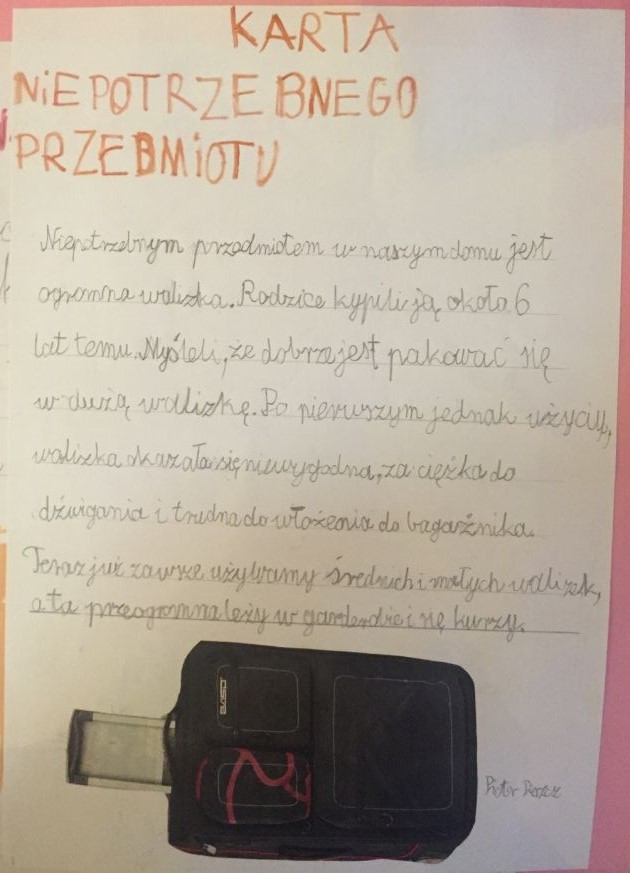 KARTA
NiEPOTRZEBNEGO
PRZEDMiOTU
Niepotrzebnym przedmiotem w naszym domu jest
ogromna walizka. Rodzice kupili ją około 6
lat temu. Myśleli, że dobrze jest pakować się
w dużą walizkę. Po pierwszym jednak użyciu,
walizka okazała się niewygodna, za ciężka do
dźwigania i trudna do włożenia do bagażnika.
Teraz już zawsze używamy średnich i małych walizek,
a ta przeogromna leży w garderobie i się kurzy.
Piotr